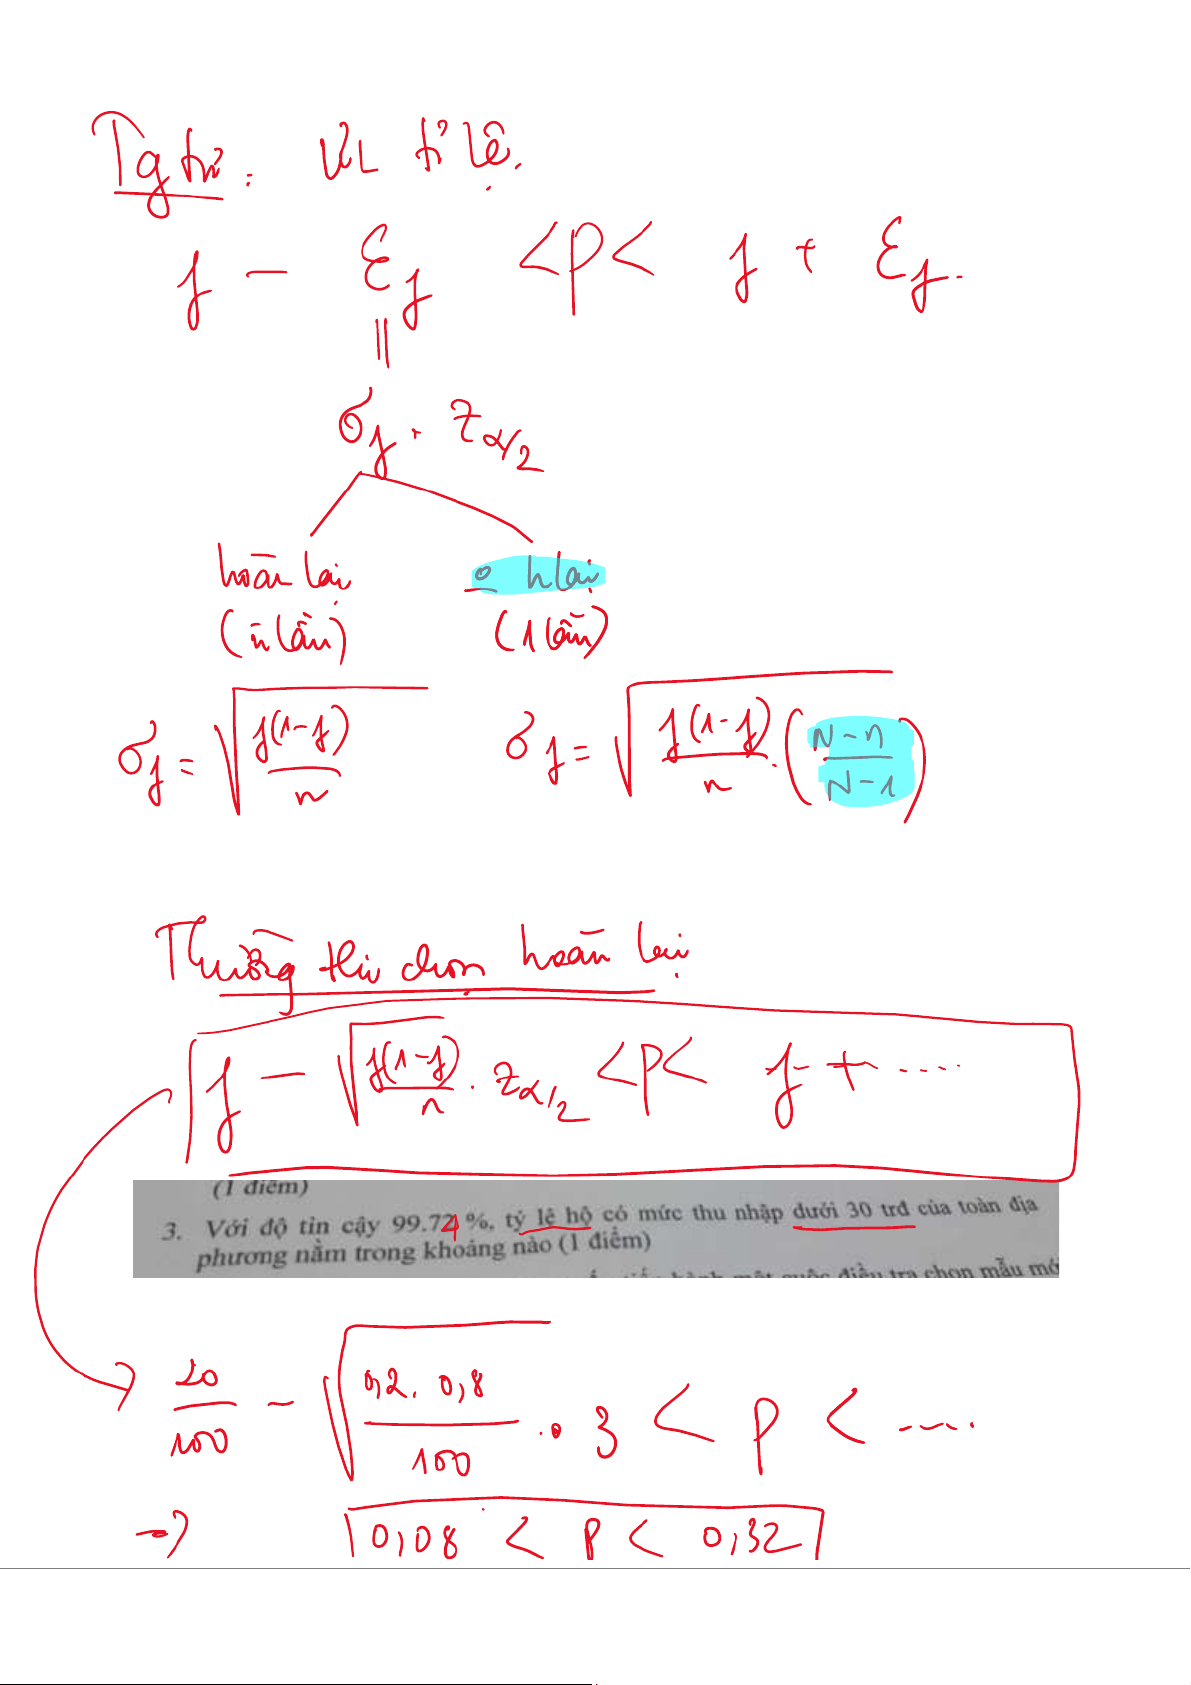 Tg tự: ƯL tỉ lệ.
f - εf < p < f + εf.
||
σf . zα/2
hoàn lại o hlại
(n lần) (1 lần)
σf = √(f(1-f)/n) σf = √(f(1-f)/n . (N-n/N-1))
Thường thì chọn hoàn lại
f - √(f(1-f)/n) . zα/2 < p < f + ....
(1 điểm)
3. Với độ tin cậy 99.74%, tỷ lệ hộ có mức thu nhập dưới 30 trđ của toàn địa
phương nằm trong khoảng nào (1 điểm)
một cuộc điều tra chọn mẫu mớ
20/100 - √(0,2. 0,8/100) . 3 < p < ....
=> 0,08 < p < 0,32